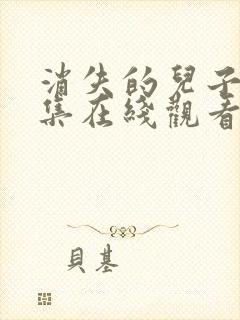 消失的兒子
集在綫觀看
貝基